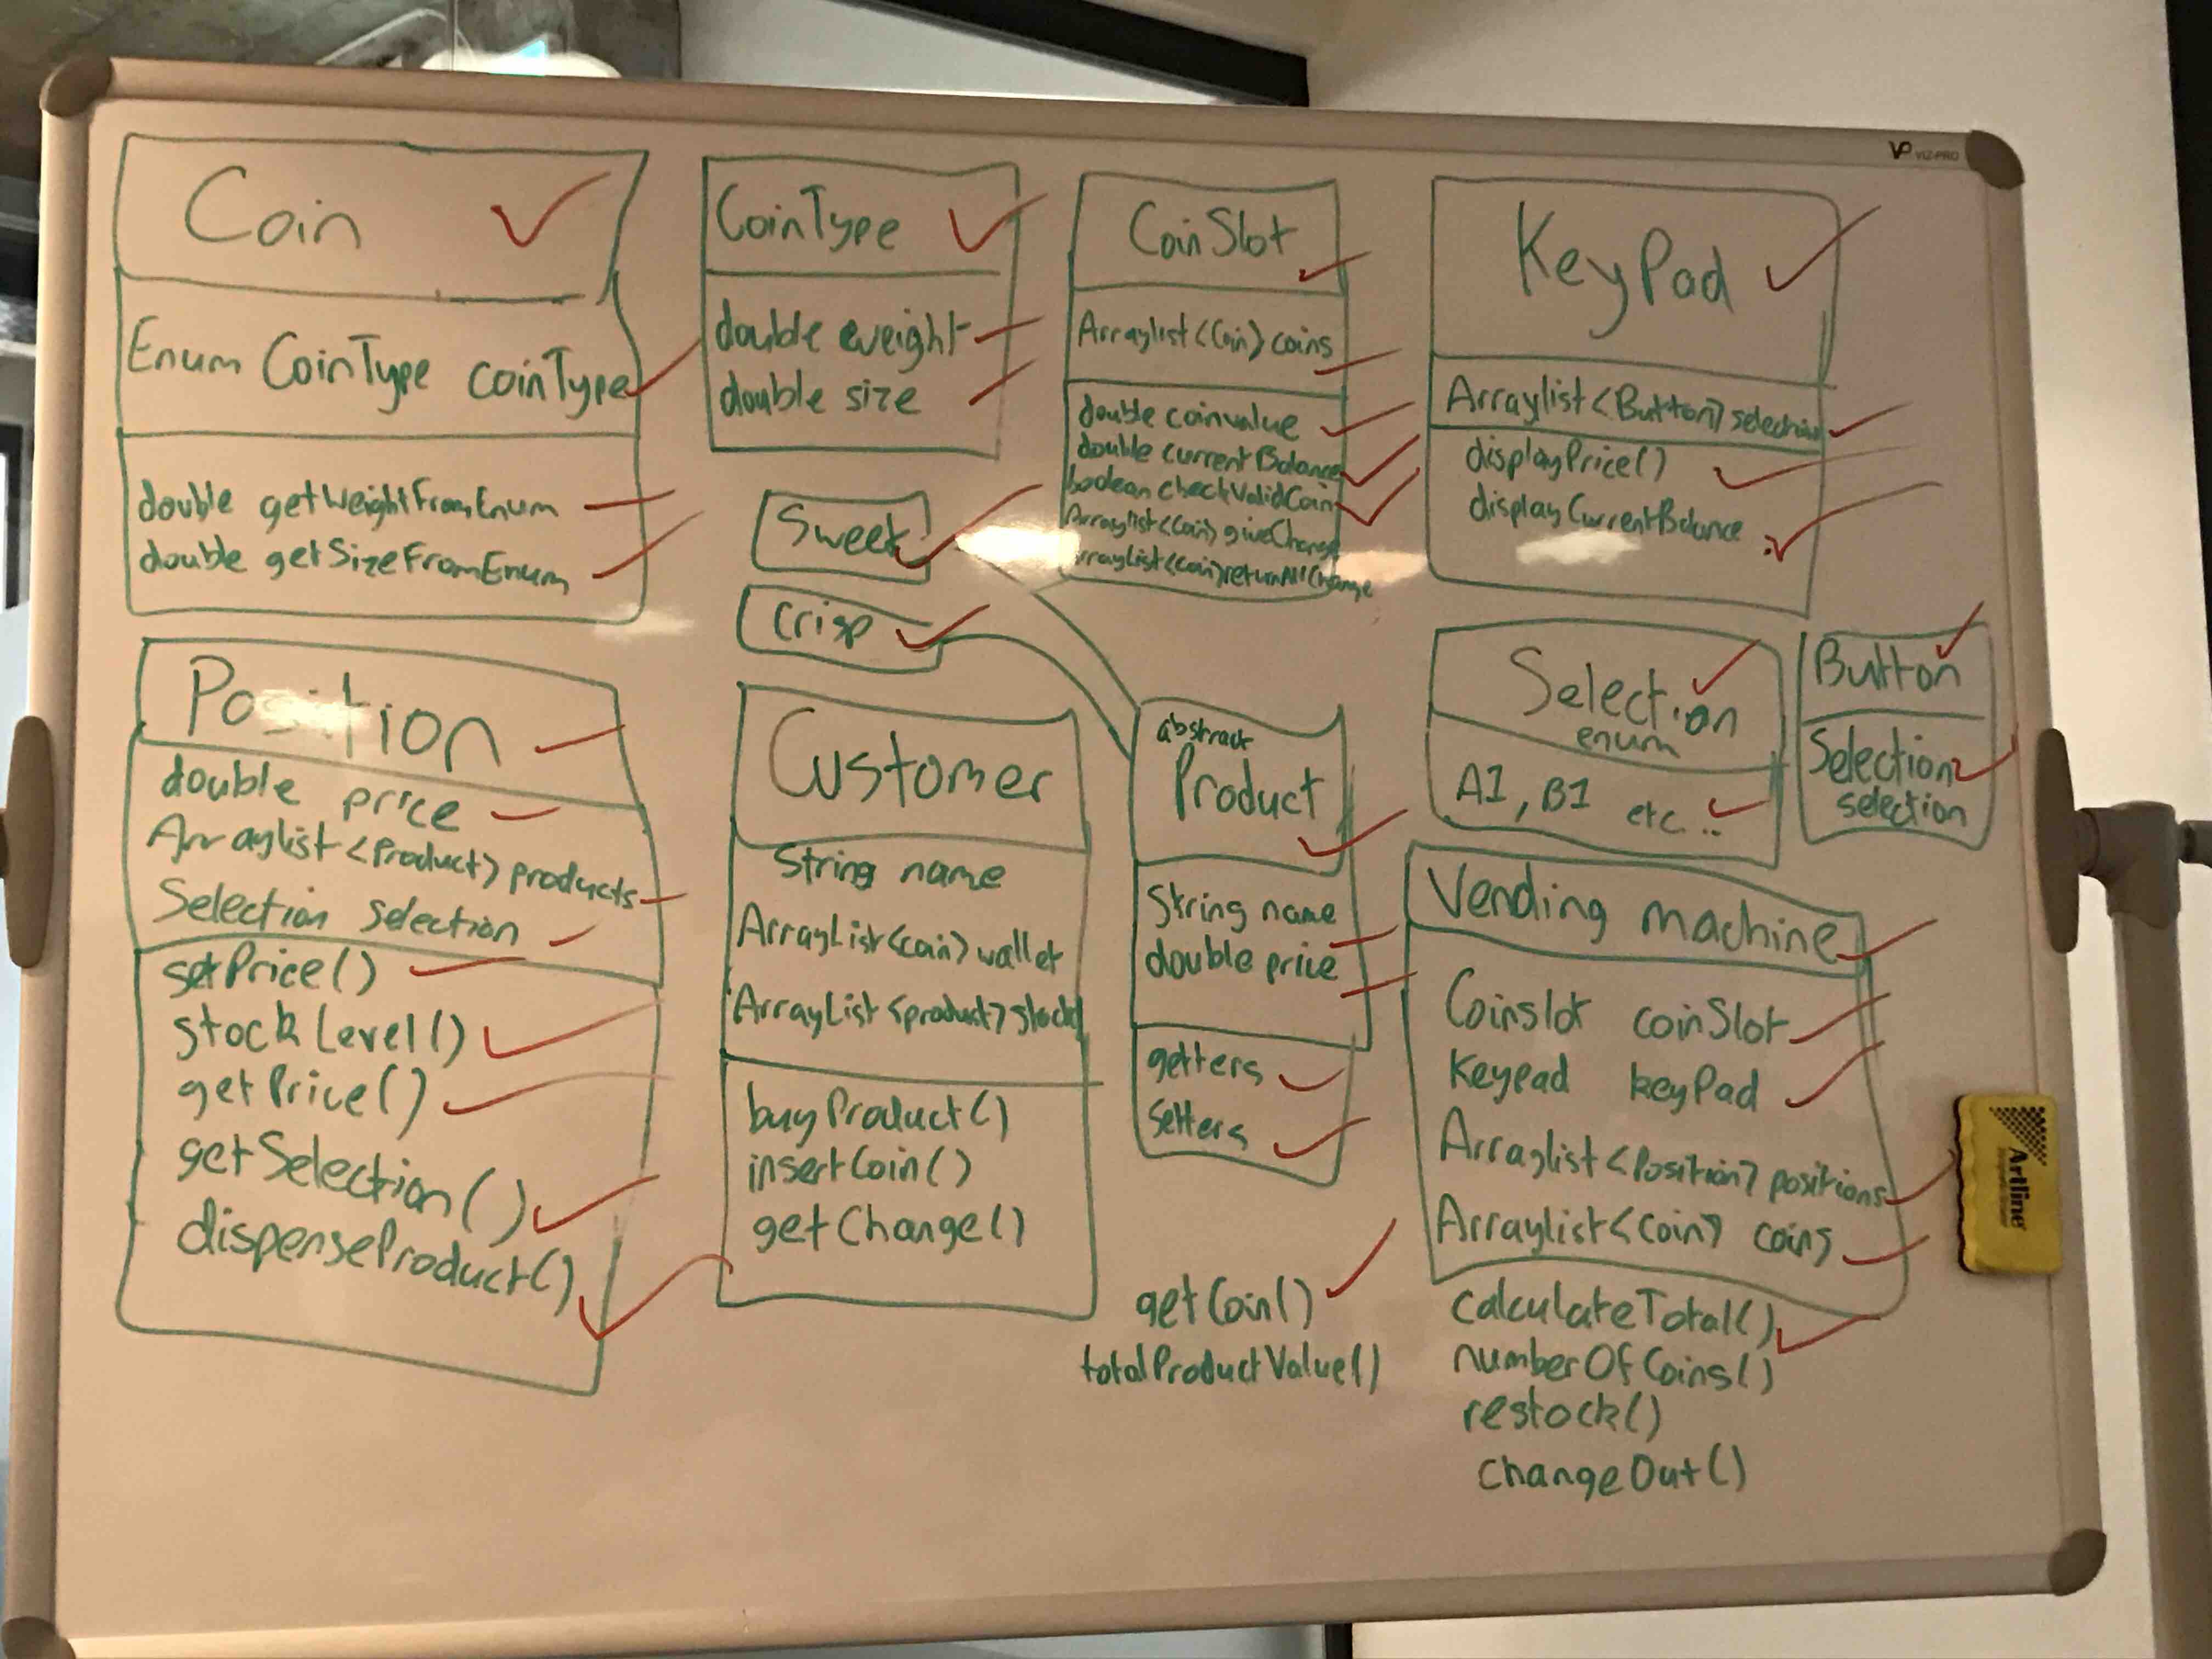 VP VIZ-PRO
Coin
Enum CoinType coinType
double getWeightFromEnum
double getSizeFromEnum
CoinType
double weight
double size
CoinSlot
Arraylist<Coin> coins
double coinvalue
double currentBalance
boolean checkValidCoin
Arraylist<Coin> giveChange
Arraylist<Coin> returnAllChange
KeyPad
Arraylist<Button> selection
displayPrice()
displayCurrentBalance
Sweet
Crisp
Position
double price
Arraylist<Product> products
Selection selection
setPrice()
stockLevel()
getPrice()
getSelection()
dispenseProduct()
Customer
String name
ArrayList<coin> wallet
ArrayList<product> stock
buyProduct()
insertCoin()
getChange()
abstract
Product
String name
double price
getters
setters
Selection
enum
A1, B1 etc...
Button
Selection
selection
Vending machine
Coinslot coinSlot
Keypad keyPad
Arraylist<Position> positions
Arraylist<Coin> coins
getCoin()
totalProductValue()
calculateTotal()
numberOfCoins()
restock()
changeOut()
Artline